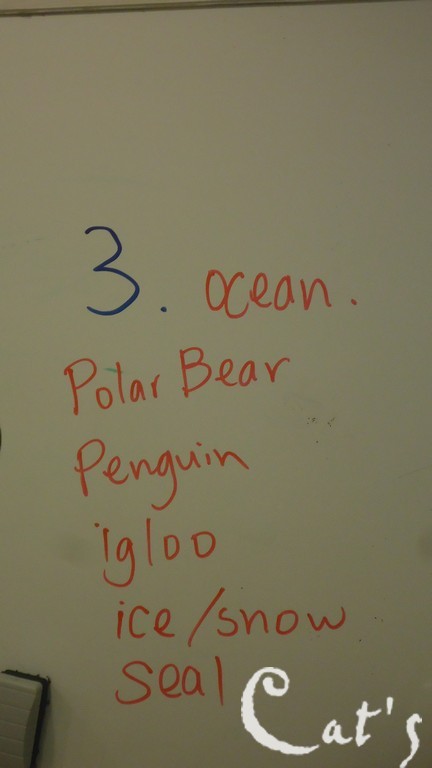 3. ocean.
Polar Bear
Penguin
igloo
ice/snow
seal
Cat's